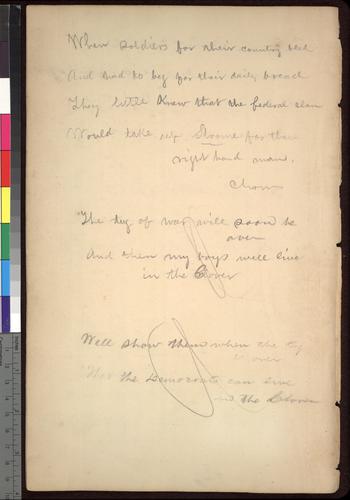 When soldiers for their country bled
And had to beg for their daily bread
They little knew that the federal clan
Would take up Sloame for their
right hand man.
Chorus
"The tug of war will soon be
over
And then my boys well live
in the Clover
Well show them when the tug
is over
That the Democrats can live
in the Clover